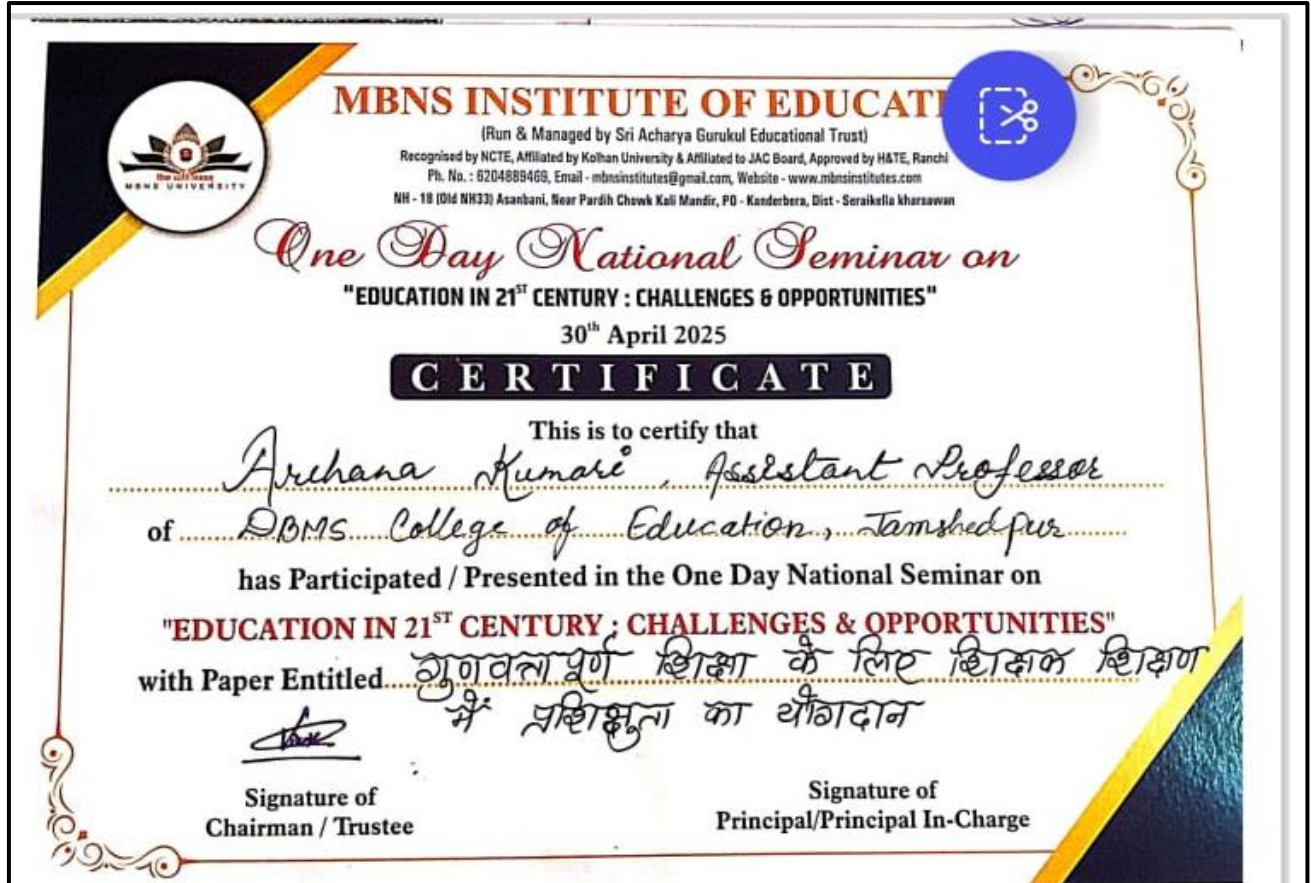 MBNS UNIVERSITY
MBNS INSTITUTE OF EDUCATI
(Run & Managed by Sri Acharya Gurukul Educational Trust)
Recognised by NCTE, Affiliated by Kolhan University & Affiliated to JAC Board, Approved by H&TE, Ranchi
Ph. No. : 6204889469, Email - mbnsinstitutes@gmail.com, Website - www.mbnsinstitutes.com
NH - 18 (Old NH33) Asanbani, Near Pardih Chowk Kali Mandir, PO - Kanderbera, Dist - Seraikella kharsawan
One Day National Seminar on
"EDUCATION IN 21ST CENTURY : CHALLENGES & OPPORTUNITIES"
30th April 2025
CERTIFICATE
This is to certify that
Archana Kumari, Assistant Professor
of DBMS College of Education, Jamshedpur
has Participated / Presented in the One Day National Seminar on
"EDUCATION IN 21ST CENTURY : CHALLENGES & OPPORTUNITIES"
with Paper Entitled गुणवत्तापूर्ण शिक्षा के लिए शिक्षक शिक्षण
में प्रशिक्षुता का योगदान
Signature of
Chairman / Trustee
Signature of
Principal/Principal In-Charge